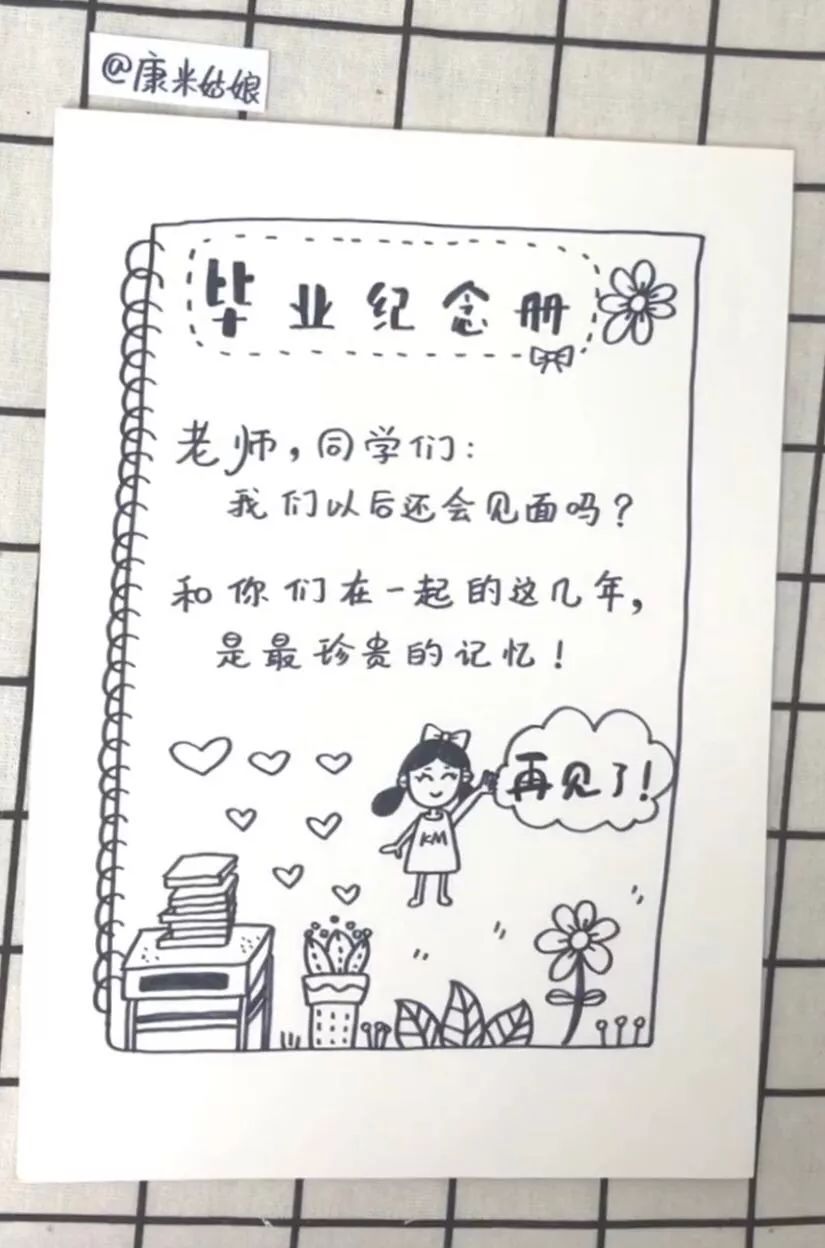 @康米姑娘
毕业纪念册
老师，同学们：
我们以后还会见面吗？
和你们在一起的这几年，
是最珍贵的记忆！
再见了！
KM